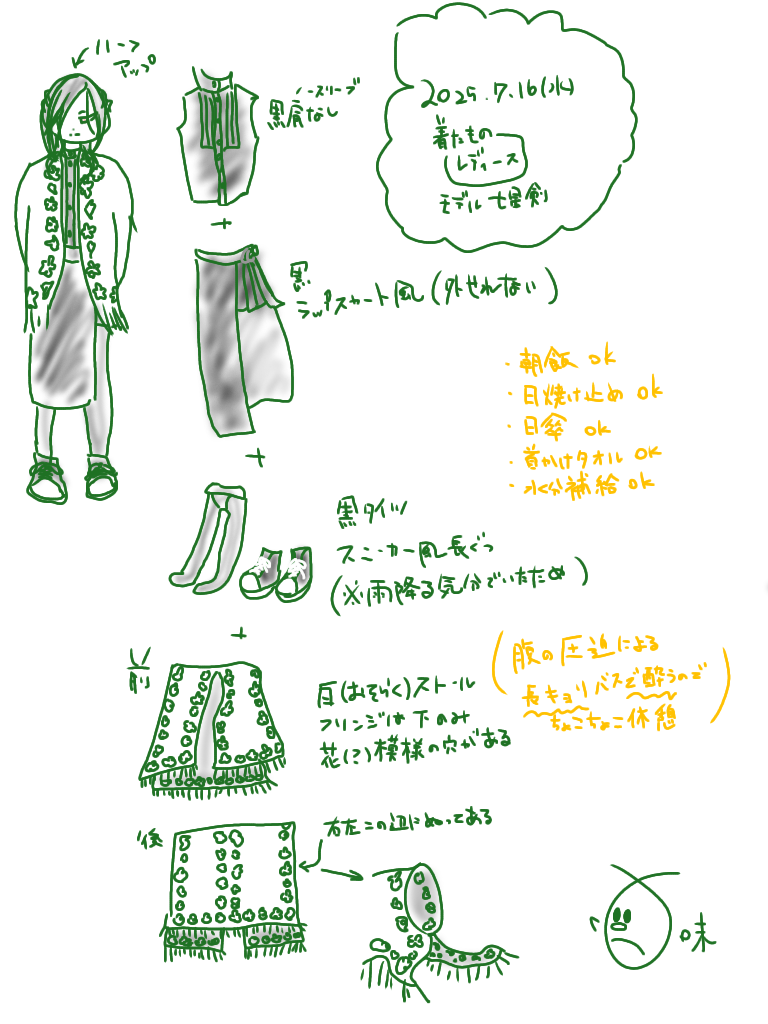 ハーフ
アップ
ノースリーブ
黒肩なし
2025.7.16(水)
着たもの
レディース
モデル 七星剣
+
黒
ラップスカート風(外せれない)
・朝飯 ok
・日焼け止め ok
・日傘 ok
・首かけタオル ok
・水分補給 ok
+
黒タイツ
スニーカー風長ぐつ
(※雨降る気分でいたため)
+
前
(腹の圧迫による
長キョリバスで酔うので
ちょこちょこ休憩)
(おそらく)ストール
フリンジは下のみ
花(?)模様の穴がある
後
右左この辺にぬってある
味